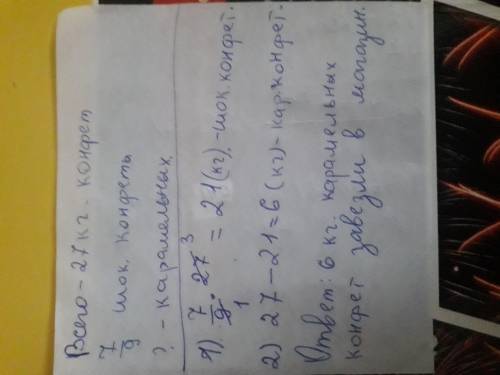 Всего - 27 кг. конфет
7/9 шок. конфеты
? - карамельных.
1) 7/9 · 27 3 = 21 (кг) - шок. конфет.
1
2) 27 - 21 = 6 (кг) - кар. конфет.
Ответ: 6 кг. карамельных
конфет завезли в магазин.